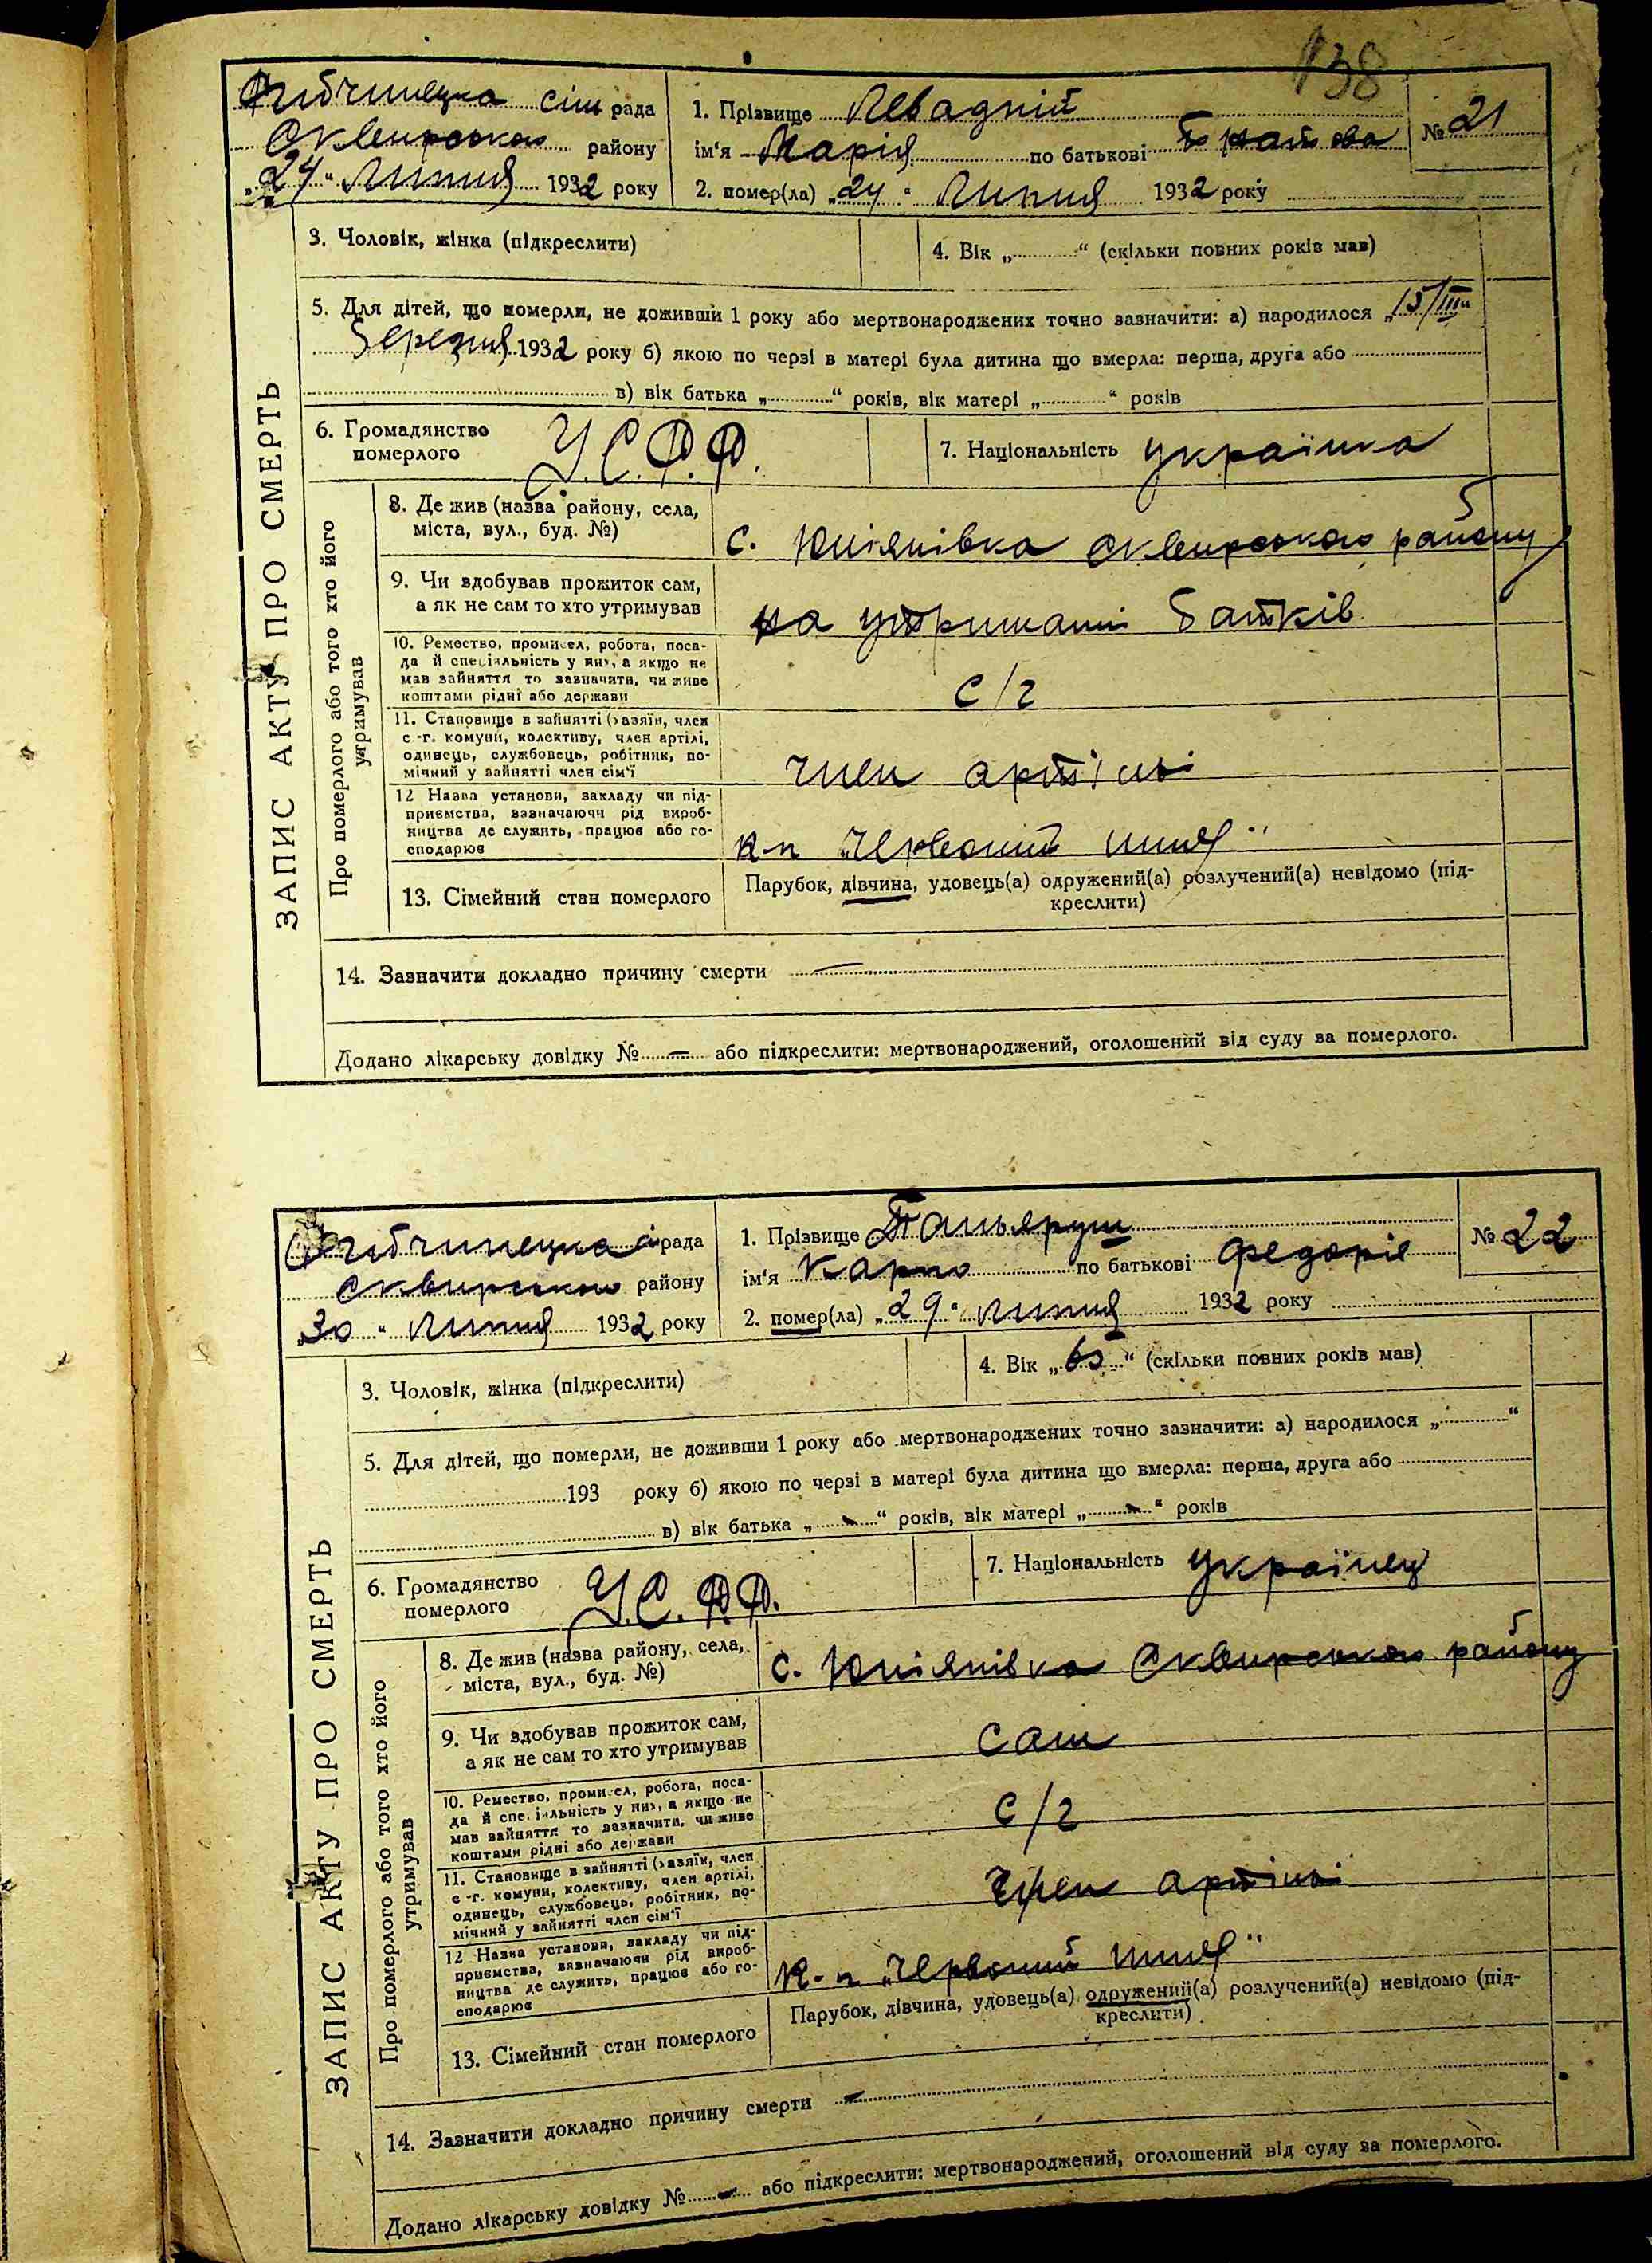 138
сіль рада
Сквирського району
„24“ Липня 1932 року
1. Прізвище Левадній
ім'я Марія по батькові
№ 21
2. помер(ла) „24“ Липня 1932 року
3. Чоловік, жінка (підкреслити)
4. Вік „ “ (скільки повних років мав)
5. Для дітей, що померли, не доживши 1 року або мертвонароджених точно зазначити: а) народилося „15/III“
Березня 1932 року б) якою по черзі в матері була дитина що вмерла: перша, друга або
в) вік батька „ “ років, вік матері „ “ років
6. Громадянство
померлого
У.С.Р.Р.
7. Національність українка
ЗАПИС АКТУ ПРО СМЕРТЬ
Про померлого або того хто його
утримував
8. Де жив (назва району, села,
міста, вул., буд. №)
с. Юліянівка Сквирського району
9. Чи здобував прожиток сам,
а як не сам то хто утримував
на утриманні батків
10. Ремество, промисел, робота, поса-
да й спеціяльність у них, а якщо не
мав зайняття то зазначити, чи живе
коштами рідні або держави
с/г
11. Становище в зайнятті (хазяїн, член
с.-г. комуни, колективу, член артілі,
одинець, службовець, робітник, по-
мічний у зайнятті член сім'ї
член артілі
12 Назва установи, закладу чи під-
приємства, зазначаючи рід вироб-
ництва де служить, працює або го-
сподарює
к-п „Червоний шлях“
13. Сімейний стан померлого
Парубок, дівчина, удовець(а) одружений(а) розлучений(а) невідомо (під-
креслити)
14. Зазначити докладно причину смерти —
Додано лікарську довідку № — або підкреслити: мертвонароджений, оголошений від суду за померлого.
рада
Сквирського району
„30“ Липня 1932 року
1. Прізвище
ім'я Карпо по батькові Федорів
№ 22
2. помер(ла) „29“ Липня 1932 року
3. Чоловік, жінка (підкреслити)
4. Вік „65“ (скільки повних років мав)
5. Для дітей, що померли, не доживши 1 року або мертвонароджених точно зазначити: а) народилося „ “
193 року б) якою по черзі в матері була дитина що вмерла: перша, друга або
в) вік батька „-“ років, вік матері „-“ років
6. Громадянство
померлого
У.С.Р.Р.
7. Національність українец
ЗАПИС АКТУ ПРО СМЕРТЬ
Про померлого або того хто його
утримував
8. Де жив (назва району, села,
міста, вул., буд. №)
с. Юліянівка Сквирського району
9. Чи здобував прожиток сам,
а як не сам то хто утримував
сам
10. Ремество, промисел, робота, поса-
да й спеціяльність у них, а якщо не
мав зайняття то зазначити, чи живе
коштами рідні або держави
с/г
11. Становище в зайнятті (хазяїн, член
с.-г. комуни, колективу, член артілі,
одинець, службовець, робітник, по-
мічний у зайнятті член сім'ї
член артілі
12 Назва установи, закладу чи під-
приємства, зазначаючи рід вироб-
ництва де служить, працює або го-
сподарює
к-п „Червоний шлях“
13. Сімейний стан померлого
Парубок, дівчина, удовець(а) одружений(а) розлучений(а) невідомо (під-
креслити)
14. Зазначити докладно причину смерти -
Додано лікарську довідку № - або підкреслити: мертвонароджений, оголошений від суду за померлого.